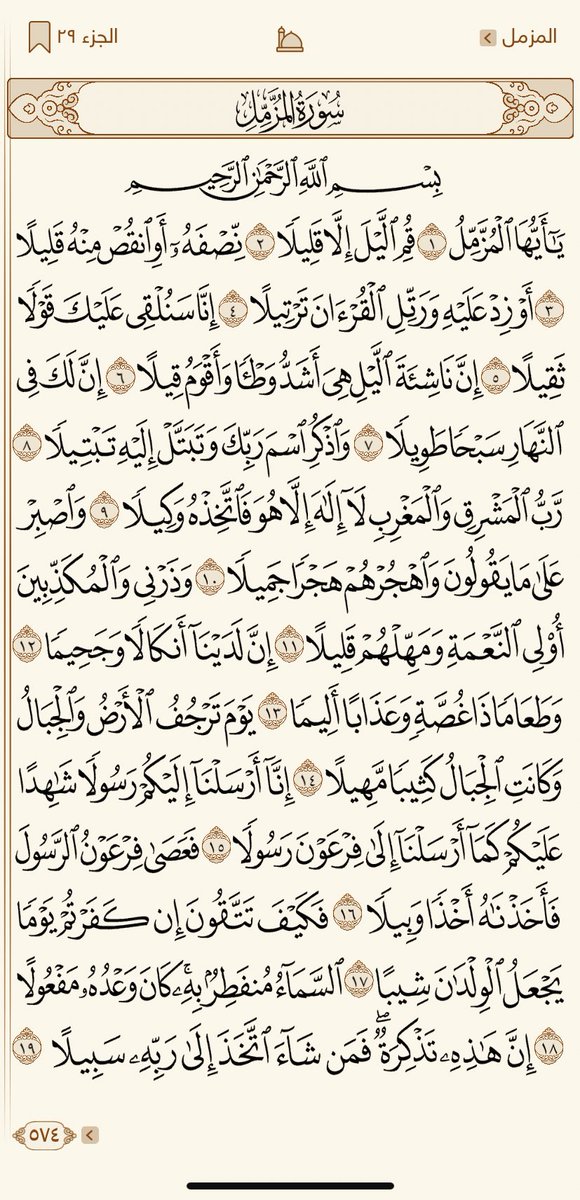 المزمل
الجزء ٢٩
سُورَةُ المُزَّمِّلِ
بِسْمِ ٱللَّهِ ٱلرَّحْمَٰنِ ٱلرَّحِيمِ
يَـٰٓأَيُّهَا ٱلْمُزَّمِّلُ ١ قُمِ ٱلَّيْلَ إِلَّا قَلِيلًا ٢ نِّصْفَهُۥٓ أَوِ ٱنقُصْ مِنْهُ قَلِيلًا
٣ أَوْ زِدْ عَلَيْهِ وَرَتِّلِ ٱلْقُرْءَانَ تَرْتِيلًا ٤ إِنَّا سَنُلْقِى عَلَيْكَ قَوْلًا
ثَقِيلًا ٥ إِنَّ نَاشِئَةَ ٱلَّيْلِ هِىَ أَشَدُّ وَطْـًٔا وَأَقْوَمُ قِيلًا ٦ إِنَّ لَكَ فِى
ٱلنَّهَارِ سَبْحًا طَوِيلًا ٧ وَٱذْكُرِ ٱسْمَ رَبِّكَ وَتَبَتَّلْ إِلَيْهِ تَبْتِيلًا ٨
رَّبُّ ٱلْمَشْرِقِ وَٱلْمَغْرِبِ لَآ إِلَٰهَ إِلَّا هُوَ فَٱتَّخِذْهُ وَكِيلًا ٩ وَٱصْبِرْ
عَلَىٰ مَا يَقُولُونَ وَٱهْجُرْهُمْ هَجْرًا جَمِيلًا ١٠ وَذَرْنِى وَٱلْمُكَذِّبِينَ
أُو۟لِى ٱلنَّعْمَةِ وَمَهِّلْهُمْ قَلِيلًا ١١ إِنَّ لَدَيْنَآ أَنكَالًا وَجَحِيمًا ١٢
وَطَعَامًا ذَا غُصَّةٍ وَعَذَابًا أَلِيمًا ١٣ يَوْمَ تَرْجُفُ ٱلْأَرْضُ وَٱلْجِبَالُ
وَكَانَتِ ٱلْجِبَالُ كَثِيبًا مَّهِيلًا ١٤ إِنَّآ أَرْسَلْنَآ إِلَيْكُمْ رَسُولًا شَـٰهِدًا
عَلَيْكُمْ كَمَآ أَرْسَلْنَآ إِلَىٰ فِرْعَوْنَ رَسُولًا ١٥ فَعَصَىٰ فِرْعَوْنُ ٱلرَّسُولَ
فَأَخَذْنَـٰهُ أَخْذًا وَبِيلًا ١٦ فَكَيْفَ تَتَّقُونَ إِن كَفَرْتُمْ يَوْمًا
يَجْعَلُ ٱلْوِلْدَٰنَ شِيبًا ١٧ ٱلسَّمَآءُ مُنفَطِرٌۢ بِهِۦۚ كَانَ وَعْدُهُۥ مَفْعُولًا
١٨ إِنَّ هَـٰذِهِۦ تَذْكِرَةٌۖ فَمَن شَآءَ ٱتَّخَذَ إِلَىٰ رَبِّهِۦ سَبِيلًا ١٩
٥٧٤